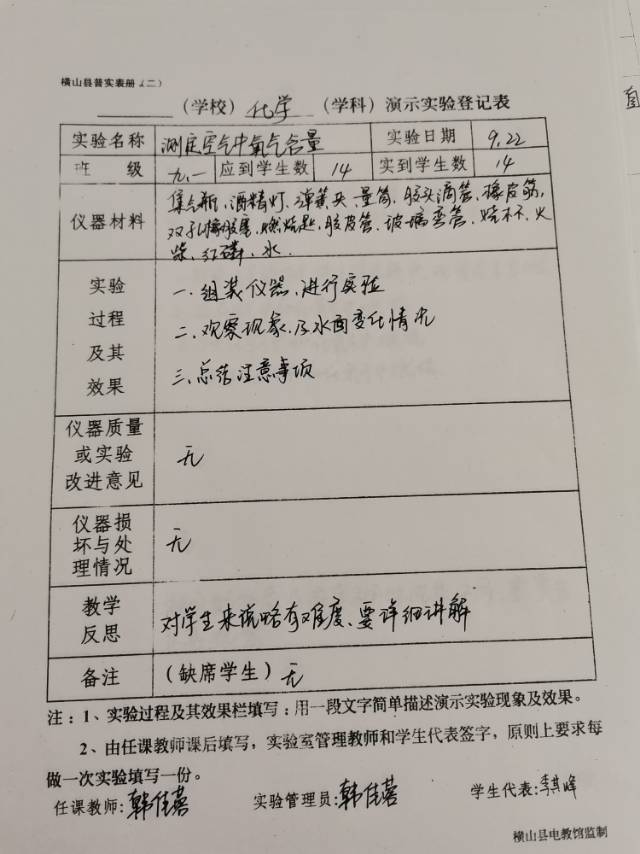 横山县普实表册(二)
(学校)化学(学科)演示实验登记表
实验名称 测定空气中氧气含量 实验日期 9.22
班级 九.一 应到学生数 14 实到学生数 14
集气瓶、酒精灯、弹簧夹、量筒、胶头滴管、橡皮筋、
仪器材料 双孔橡胶塞、燃烧匙、胶皮管、玻璃弯管、烧杯、火
柴、红磷、水.
实验 一.组装仪器、进行实验
过程
及其 二、观察现象、及水面变化情况
效果 三、总结注意事项
仪器质量
或实验 无
改进意见
仪器损
坏与处 无
理情况
教学
反思 对学生来说略有难度、要详细讲解
备注 (缺席学生)无
注:1、实验过程及其效果栏填写:用一段文字简单描述演示实验现象及效果。
2、由任课教师课后填写,实验室管理教师和学生代表签字,原则上要求每
做一次实验填写一份。
任课教师:韩佳蓉 实验管理员:韩佳蓉 学生代表:李其峰
横山县电教馆监制